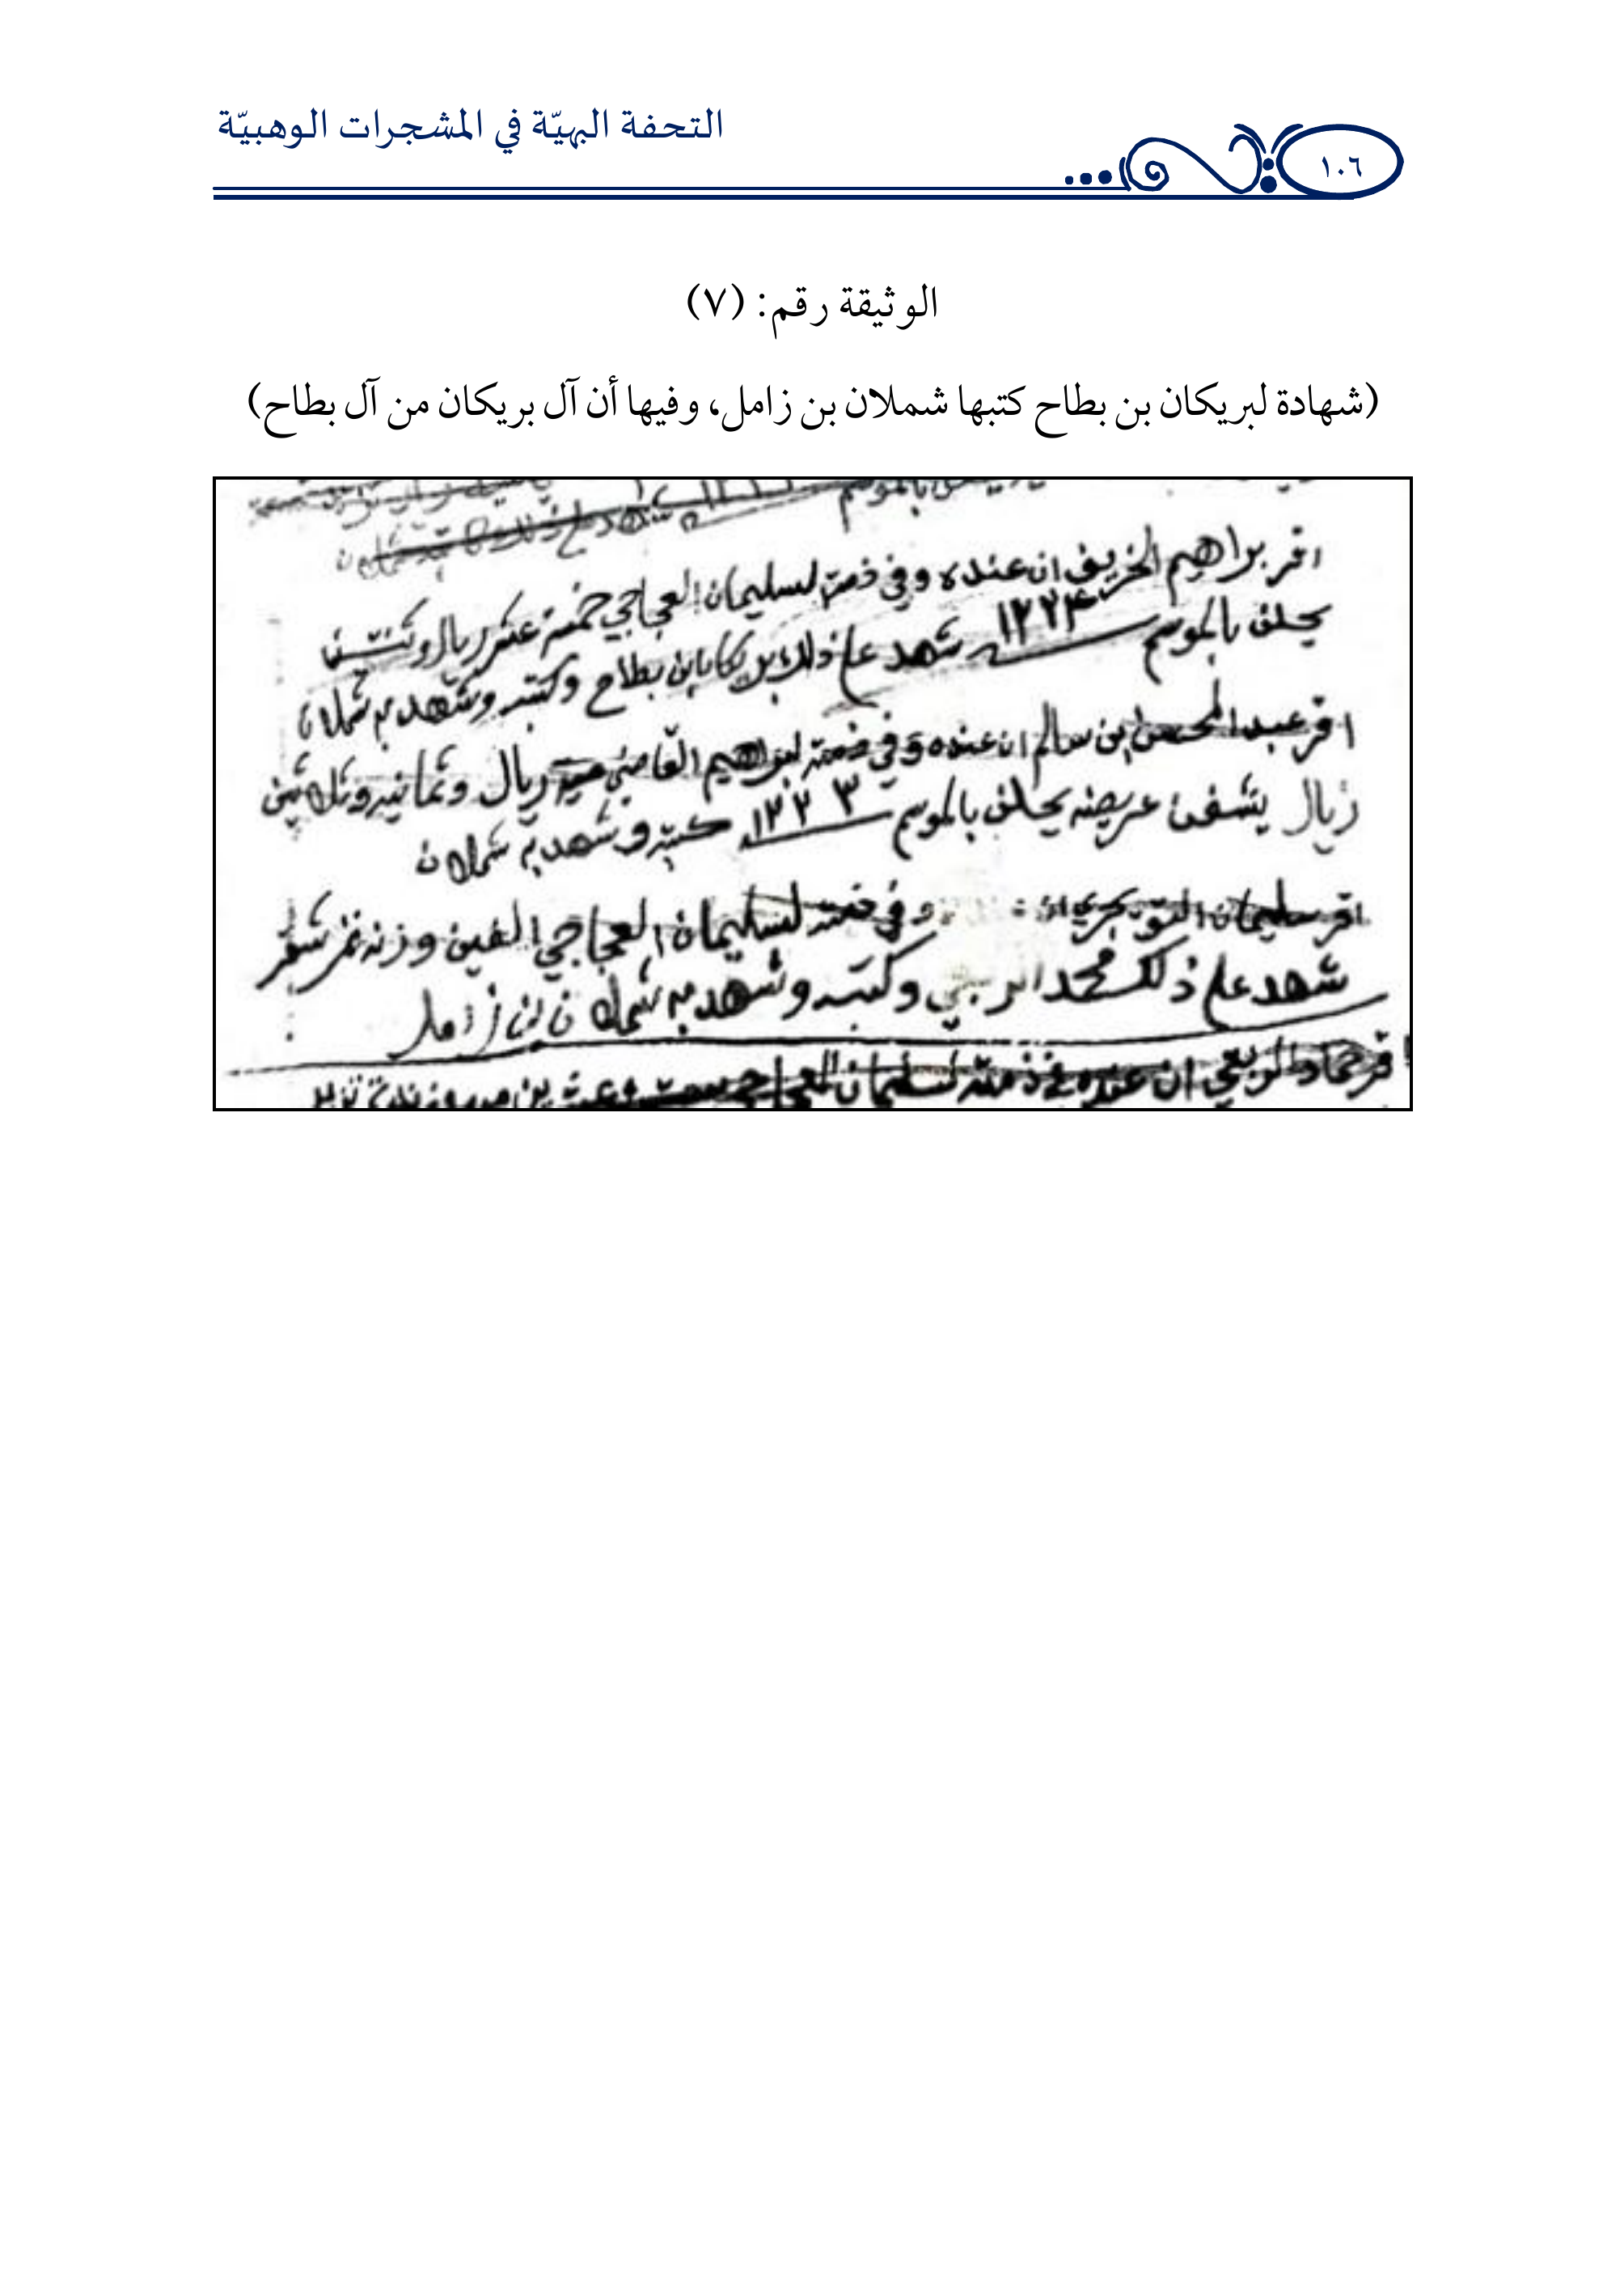 التحفة البهيّة في المشجرات الوهبيّة
١٠٦
الوثيقة رقم: (٧)
(شهادة لبريكان بن بطاح كتبها شملان بن زامل، وفيها أن آل بريكان من آل بطاح)
اقر براهيم الخريف ان عنده وفي ذمته لسليمان العجاجي خمسة عشر ريال
يحلن بالموسم ١٢٢٣ شهد على ذلك بريكان ابن بطاح وكتبه وشهد به شملان
اقر عبد المحسن ابن سالم ان عنده وفي ذمته لبراهيم القاضي ريال وثمانيه وثلاثين
ريال عريضه يحلن بالموسم ١٢٢٣ كتبه وشهد به شملان
اقر سليمان التويجري وفي ذمته لسليمان العجاجي الفين وزنه تمر شقر
شهد على ذلك محمد وكتبه وشهد به شملان بن زامل
اقر حماد الربعي ان عنده في ذمته لسليمان العجاجي